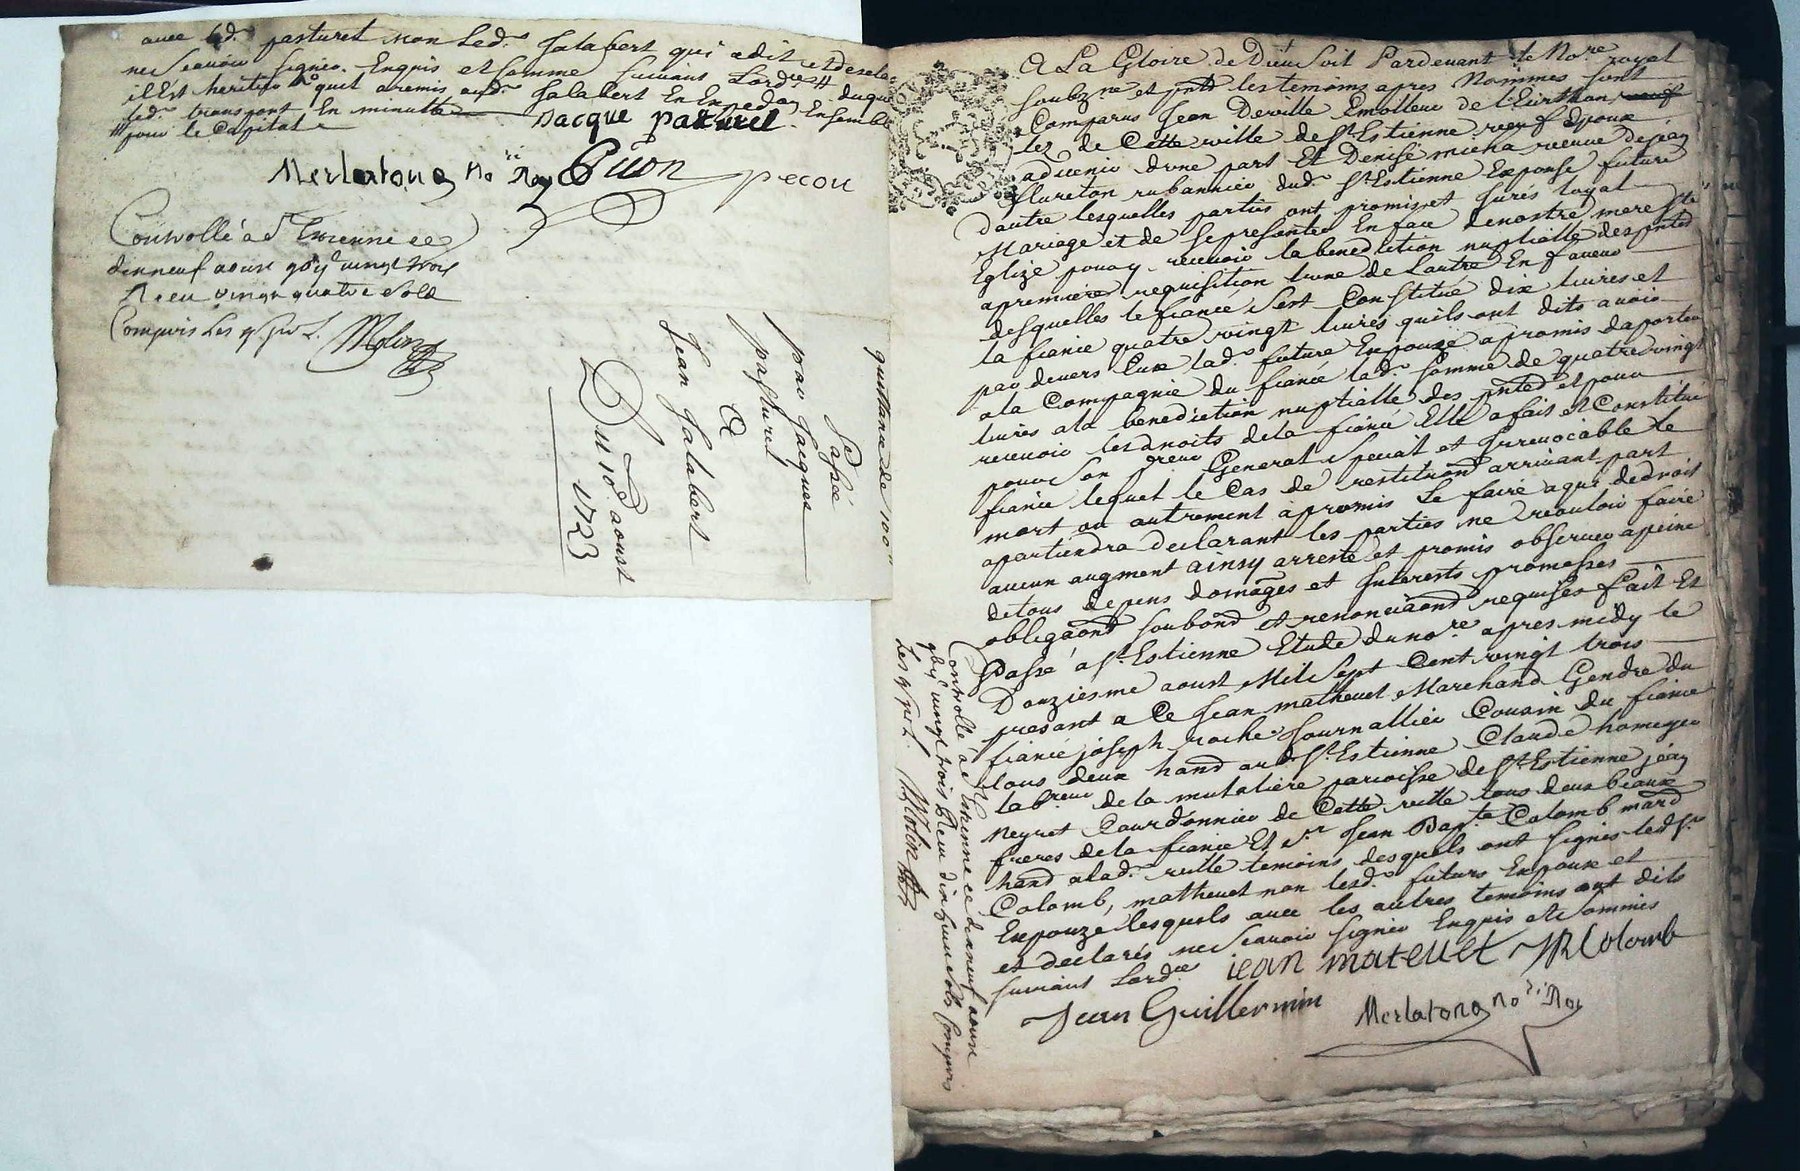 avec led. pasturel non led. Jalabert qui a dit et declaré
ne scavoir signer. Enquis et somme suivant Lord.ce #
il Est heritier quil a remis aud. Jalabert En Expedon Ensemble
led. transport En minutte
# pour le Capital
Jacque paturel
Merlatong No.re Roy
pecou
Controllé a St Etienne ce
dixneuf aoust vingt trois
Receu vingt quatre sols
Compris Les
Molin
quittance de 100
Passée
par Jacques
pasturel
A
Jean Jalabert
Du 10e aoust
1723
A La Gloire de Dieu Soit Pardevant le No.re royal
soubz.ne et les temoins apres Nommes sont
Comparus Jean Deville Emolleur de
de Cette ville de St. Estienne Epoux
advenir dune part Et Denise micha veuve de jean
fleureton rubannier dud. St. Estienne Exponse future
Dautre lesquelles parties ont promis et jurés loyal
Mariage et de se presenter En face de nostre mere Ste
Eglize pour y recevoir la benediction nuptialle des pntes
a premiere requisition lune de Lautre En faveur
desquelles le fiancé sest Constitué dix livres et
la fiancé quatre vingt livres quils ont dits avoir
par devers Eux lad. future Expouze a promis daporter
a la Compagnie du fiancé lad. somme de quatre vingt
livres a la benediction nuptialle des pntes et pour
recevoir les droits de la fiancé Elle a fait et Constitué
pour son General special et Irrevocable le
fiancé lequel le Cas de restituon arrivant part
mort ou autrement a promis Le faire a qui de droit
apartiendra declarant les parties ne vouloir faire
aucun augment ainsy arresté et promis observer a peine
de tous depens domages et Interests promesses
obligaons soubons et renonciaons requises fait Et
Passé a St. Estienne Etude du no.re apres midy le
Douziesme aoust Mil sept Cent vingt trois
presant a Ce Jean matheuet Marchand Gendre du
fiancé joseph roche Journallier Cousin du fiancé
tous deux hand aud. St. Estienne Claude
lab.reur de la mutaliere parroisse de St. Estienne jean
Neyret Courdonnier de Cette ville tous deux beaux
freres de la fiancé Et Sr. Jean Bap.te Colomb mard
hand a lad. ville temoins desquels ont signes led. Sr.
Colomb, matheuet non lesd. futurs Expoux et
Expouze lesquels avec les autres temoins ont dits
et declarés ne scavoir signer Enquis et sommés
suivant Lord.ce
jean mateuet JB Colomb
Jean Guillermin
Merlatong No.re Roy
Controllé a St Etienne ce dixneuf aoust
vingt trois Receu dix huit sols Compris
Les
Molin